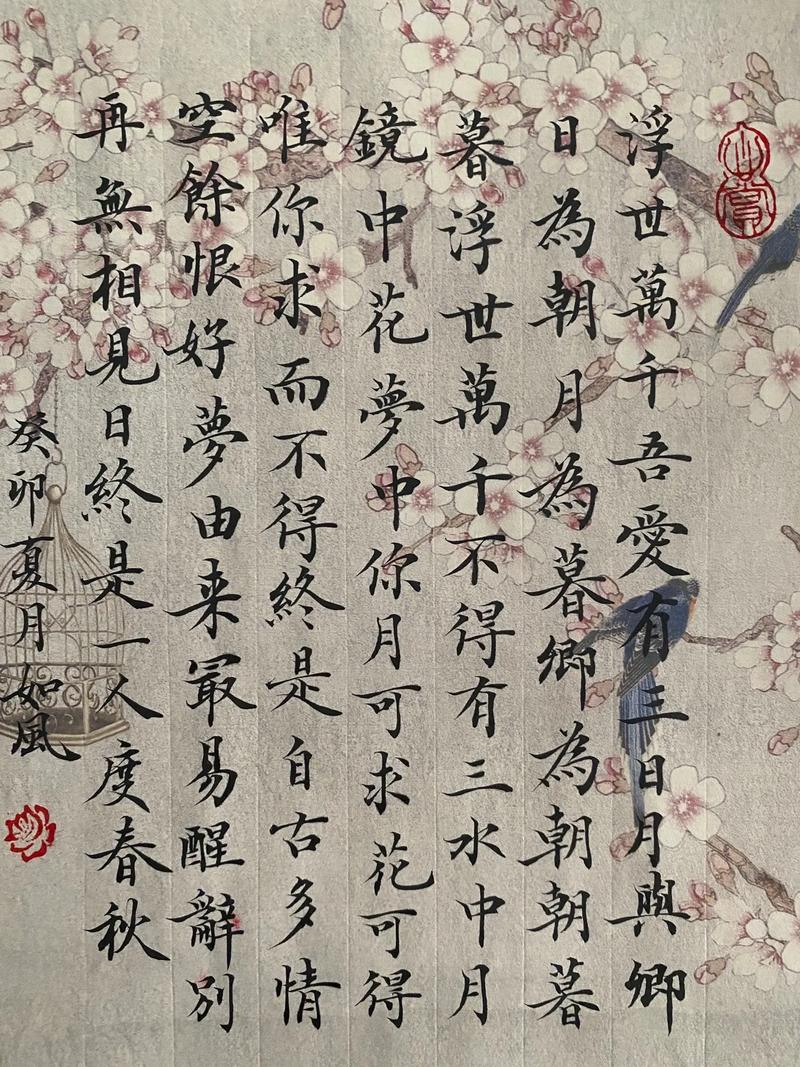 浮世萬千吾愛有三日月與卿
日為朝月為暮卿為朝朝暮
暮浮世萬千不得有三水中月
鏡中花夢中你月可求花可得
唯你求而不得終是自古多情
空餘恨好夢由来最易醒辭別
再無相見日終是一人度春秋
癸卯夏月如風